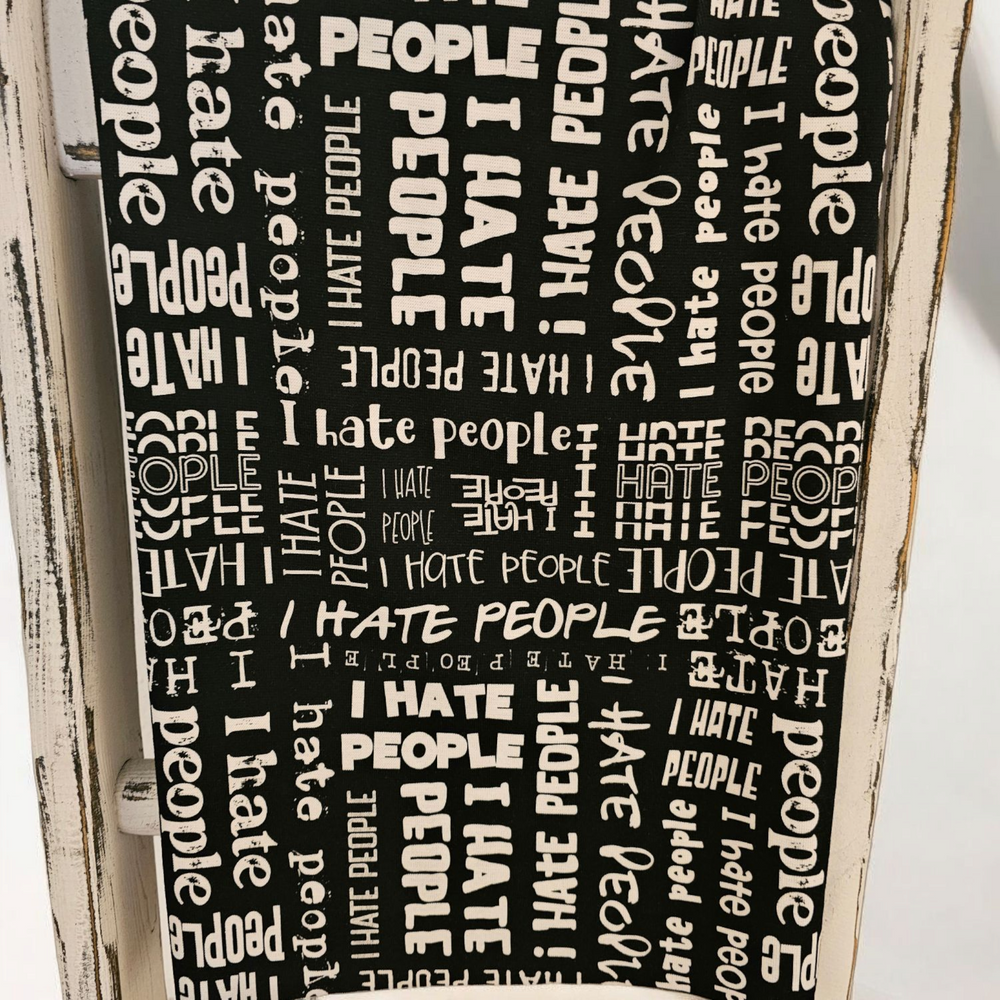 people
I hate
hate people
PEOPLE
I HATE PEOPLE
I HATE
PEOPLE
i HATE PEOPLE
HATE PEOPLE
HATE
PEOPLE
I hate people
I hate people
people
I HATE
PEOPLE
I HATE PEOPLE
I hate people
OPLE
I HATE
PEOPLE
I HATE
PEOPLE
I HATE
PEOPLE
I HATE PEOPLE
I HATE PEOPLE
I HATE PEOPLE
I HATE PEOPLE
I HATE
PEOPLE
people
I hate
I hate people
I HATE PEOPLE
I HATE
PEOPLE
i HATE PEOPLE
I HATE PEOPL
I HATE
PEOPLE
hate people
I hate peop
people
PEOPLE
I HATE
I HATE PEOPLE